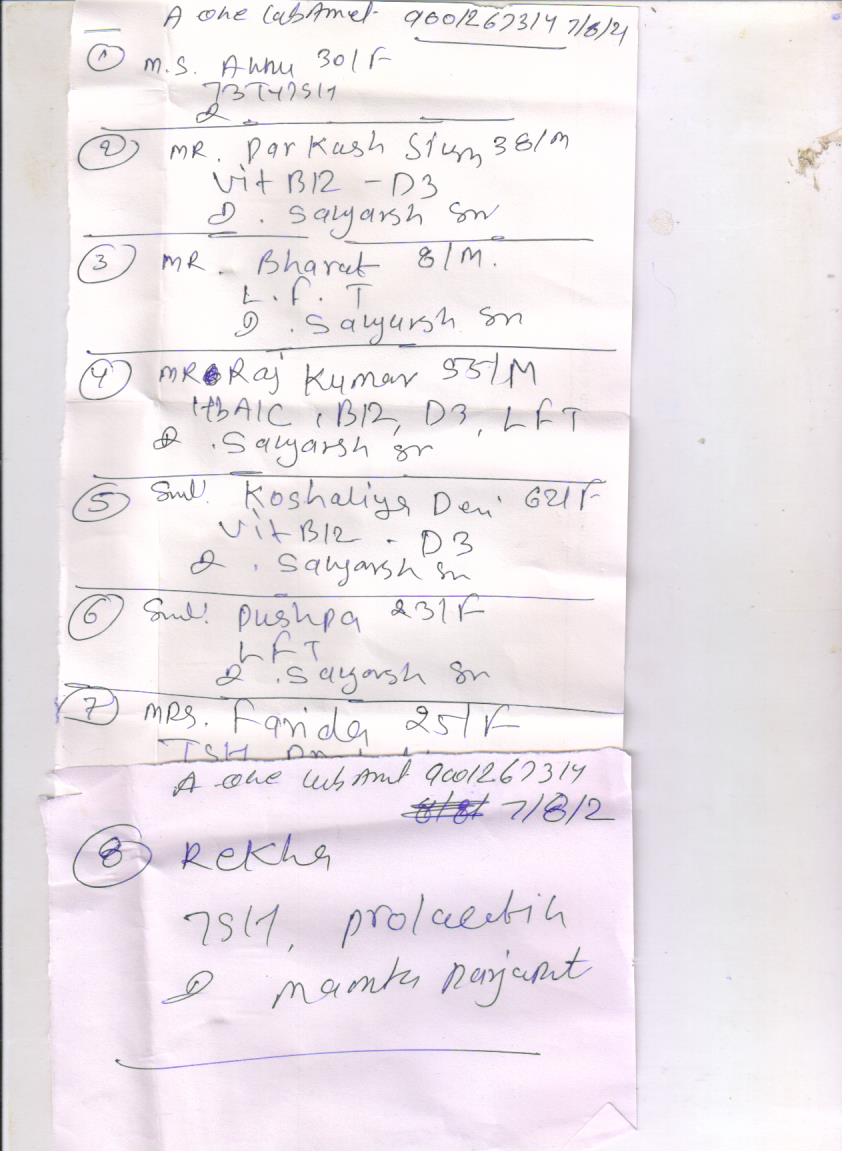 A one Lab Amet 9001267314 7/8/21
1 M.S. Annu 30/F
T3T4TSH
D
2 MR. Parkash Singh 38/M
Vit B12 - D3
D. Satyarsh Sr
3 MR. Bharat 8/M.
L.F.T
D. Satyarsh Sr
4 MR Raj Kumar 55/M
HbA1C, B12, D3, LFT
D. Satyarsh Sr
5 Smt. Koshaliya Devi 62/F
Vit B12 - D3
D. Satyarsh Sr
6 Smt. Pushpa 23/F
LFT
D. Satyarsh Sr
7 MRS. Farida 25/F
TSH
A one Lab Amt 9001267314
7/8/2
8 Rekha
TSH, prolactin
D Mamta